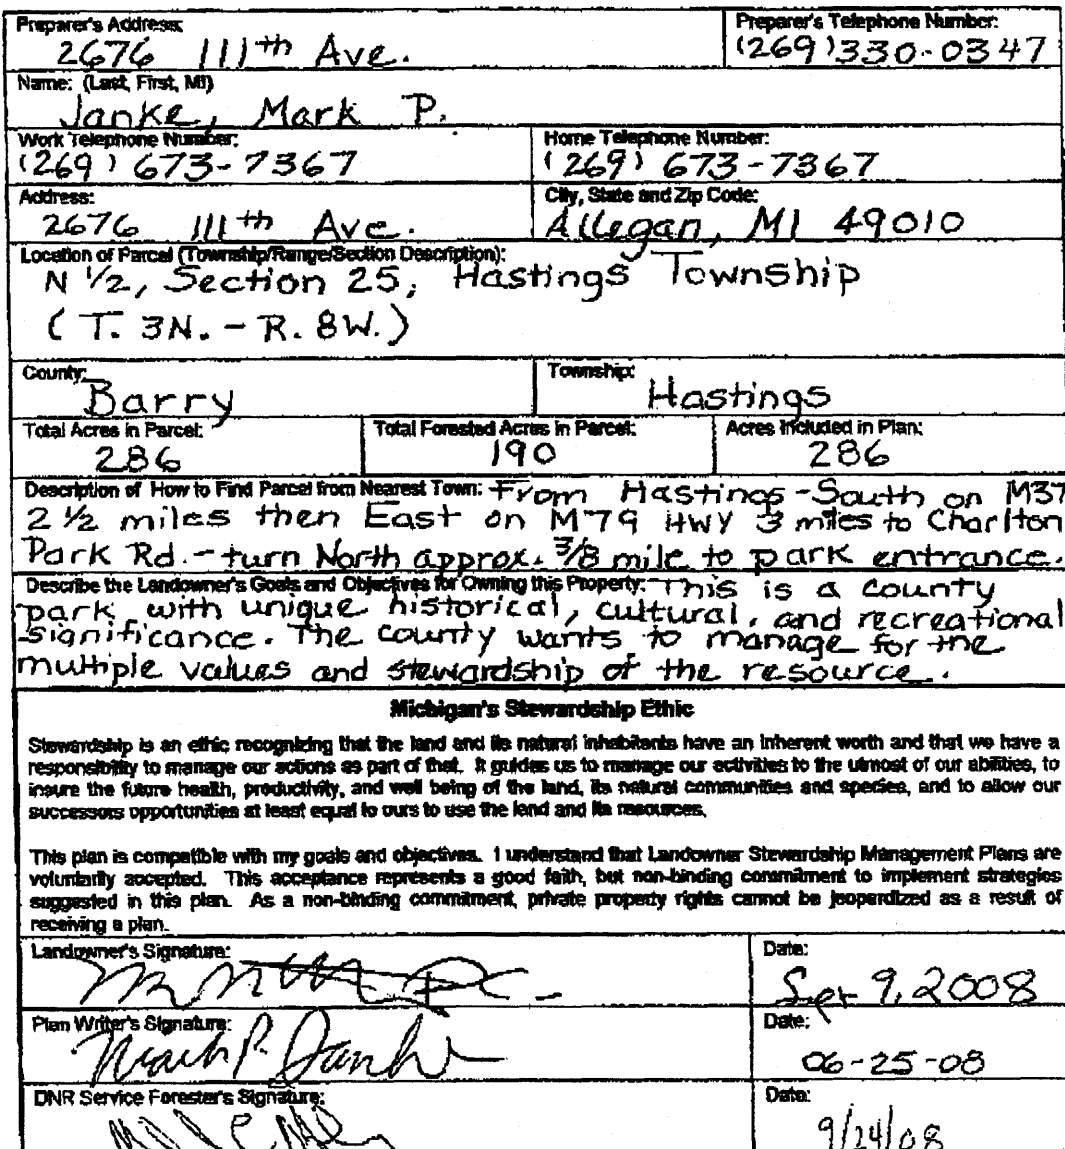 Preparer's Address: Preparer's Telephone Number:
2676 111th Ave. (269)330-0347
Name: (Last, First, MI)
Janke, Mark P.
Work Telephone Number: Home Telephone Number:
(269) 673-7367 (269) 673-7367
Address: City, State and Zip Code:
2676 111th Ave. Allegan, MI 49010
Location of Parcel (Township/Range/Section Description):
N 1/2, Section 25, Hastings Township
(T. 3N. - R. 8W.)
County: Township:
Barry Hastings
Total Acres in Parcel: Total Forested Acres in Parcel: Acres Included in Plan:
286 190 286
Description of How to Find Parcel from Nearest Town: From Hastings - South on M37
2 1/2 miles then East on M79 HWY 3 miles to Charlton
Park Rd. - turn North approx. 3/8 mile to park entrance.
Describe the Landowner's Goals and Objectives for Owning this Property: This is a county
park with unique historical, cultural, and recreational
significance. The county wants to manage for the
multiple values and stewardship of the resource.
Michigan's Stewardship Ethic
Stewardship is an ethic recognizing that the land and its natural inhabitants have an inherent worth and that we have a
responsibility to manage our actions as part of that. It guides us to manage our activities to the utmost of our abilities, to
insure the future health, productivity, and well being of the land, its natural communities and species, and to allow our
successors opportunities at least equal to ours to use the land and its resources.
This plan is compatible with my goals and objectives. I understand that Landowner Stewardship Management Plans are
voluntarily accepted. This acceptance represents a good faith, but non-binding commitment to implement strategies
suggested in this plan. As a non-binding commitment, private property rights cannot be jeopardized as a result of
receiving a plan.
Landowner's Signature: Date:
Sep 9, 2008
Plan Writer's Signature: Date:
Mark P. Janke 06-25-08
DNR Service Forester's Signature: Date:
9/24/08